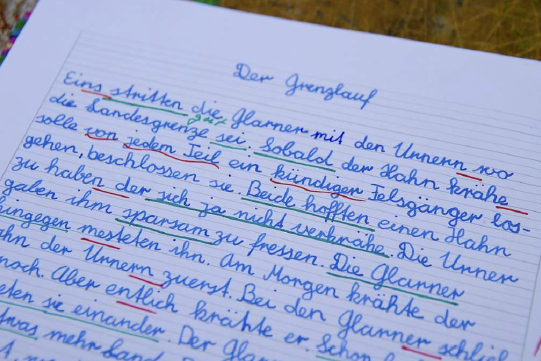 Der Grenzlauf
Eins stritten die Glarner mit den Urnern wo
die Landesgrenze sei. Sobald der Hahn krähe
solle von jedem Teil ein kündiger Felsgänger los-
gehen, beschlossen sie. Beide hofften einen Hahn
zu haben der sich ja nicht verkrähe. Die Urner
gaben ihm sparsam zu fressen. Die Glarner
hingegen mesteten ihn. Am Morgen krähte der
ahn der Urnern zuerst. Bei den Glarnern
noch. Aber entlich krähte er. Schon
sie einander. Der Gla
mehr Land